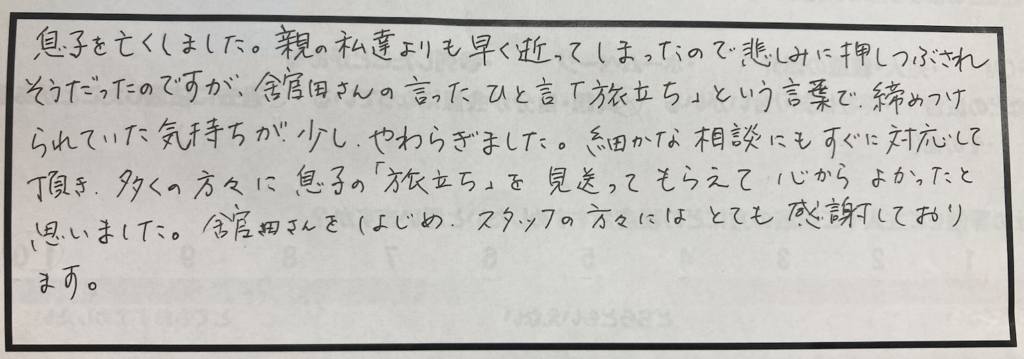 息子を亡くしました。親の私達よりも早く逝ってしまったので悲しみに押しつぶされ
そうだったのですが、舘田さんの言ったひと言「旅立ち」という言葉で、締めつけ
られていた気持ちが、少し、やわらぎました。細かな相談にもすぐに対応して
頂き、多くの方々に息子の「旅立ち」を見送ってもらえて心からよかったと
思いました。舘田さんをはじめ、スタッフの方々にはとても感謝しており
ます。
1 2 3 4 5 6 7 8 9 10
どちらともいえない